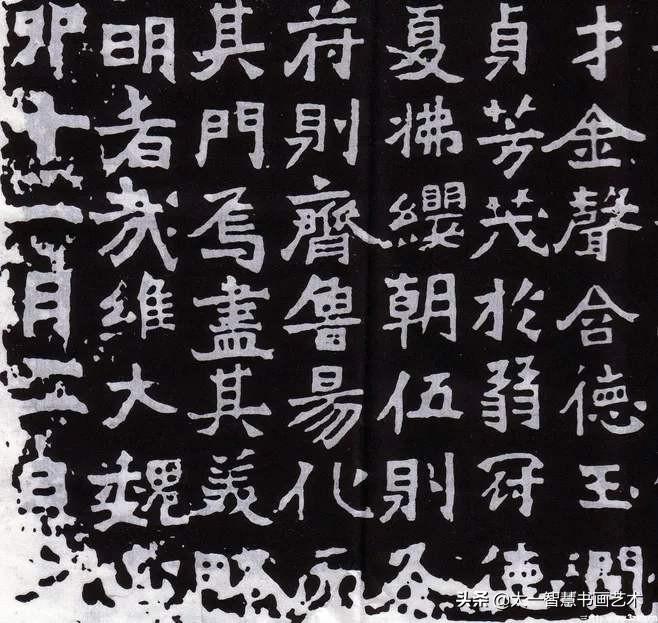 才金聲含德玉潤
貞芳茂於弱冠德
夏拂纓朝伍則
苻則齊魯易化
其門焉盡其美略
明者哉維大魏
卯十二月二日
头条 @大一智慧书画艺术